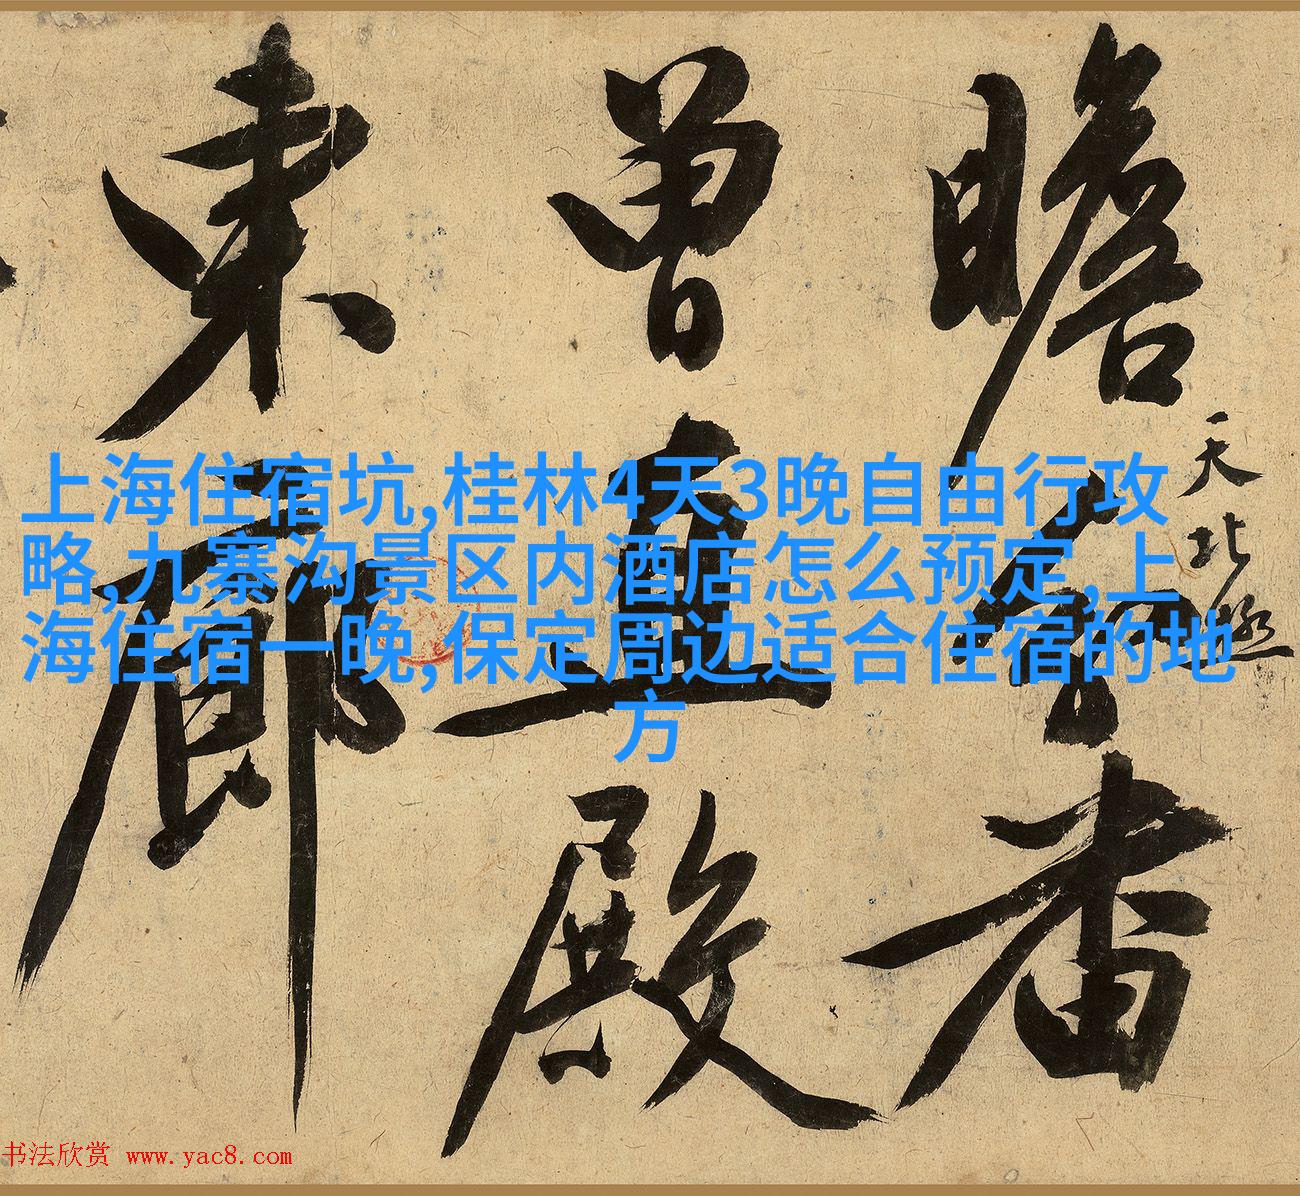 瞻
番
天
北
曾
直
殿
東
廊
上海住宿坑,桂林4天3晚自由行攻
略,九寨沟景区内酒店怎么预定,上
海住宿一晚,保定周边适合住宿的地
方
书法欣赏 www.yac8.com